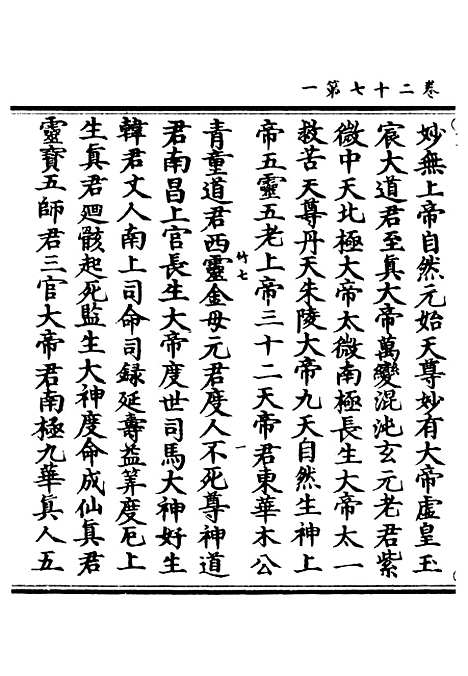 卷二十七第一
妙無上帝自然元始天尊妙有大帝虛皇玉
宸大道君至眞大帝萬變混沌玄元老君紫
微中天北極大帝太微南極長生大帝太一
救苦天尊丹天朱陵大帝九天自然生神上
帝五靈五老上帝三十二天帝君東華木公
竹七
一
青童道君西靈金母元君度人不死尊神道
君南昌上官長生大帝度世司馬大神好生
韓君丈人南上司命司録延壽益筭度厄上
生眞君廻骸起死監生大神度命成仙眞君
靈寶五師君三官大帝君南極九華眞人五